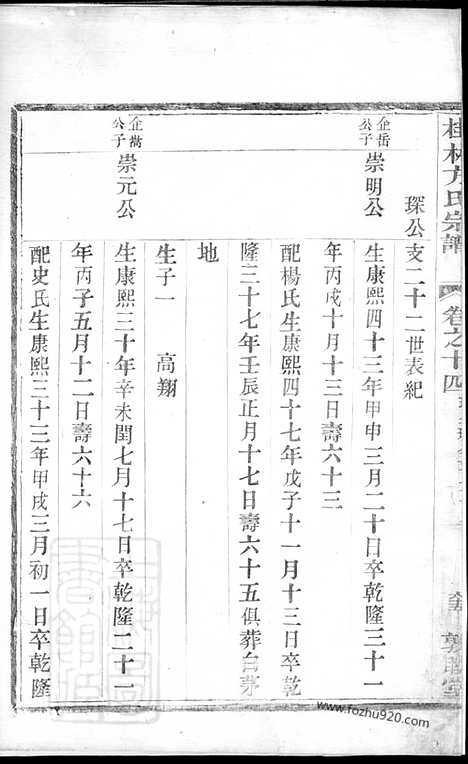 桂林方氏宗譜 卷之十四
琛公支二十二世表紀
企岳公子 崇明公 生康熙四十三年甲申三月二十日卒乾隆三十一
年丙戌十月十三日壽六十三
配楊氏生康熙四十七年戊子十一月十三日卒乾
隆三十七年壬辰正月十七日壽六十五俱葬白茅
地
生子一 高翔
企嵩公子 崇元公 生康熙三十年辛未閏七月十七日卒乾隆二十一
年丙子五月十二日壽六十六
配史氏生康熙三十三年甲戌三月初一日卒乾隆
www.fozhu920.com